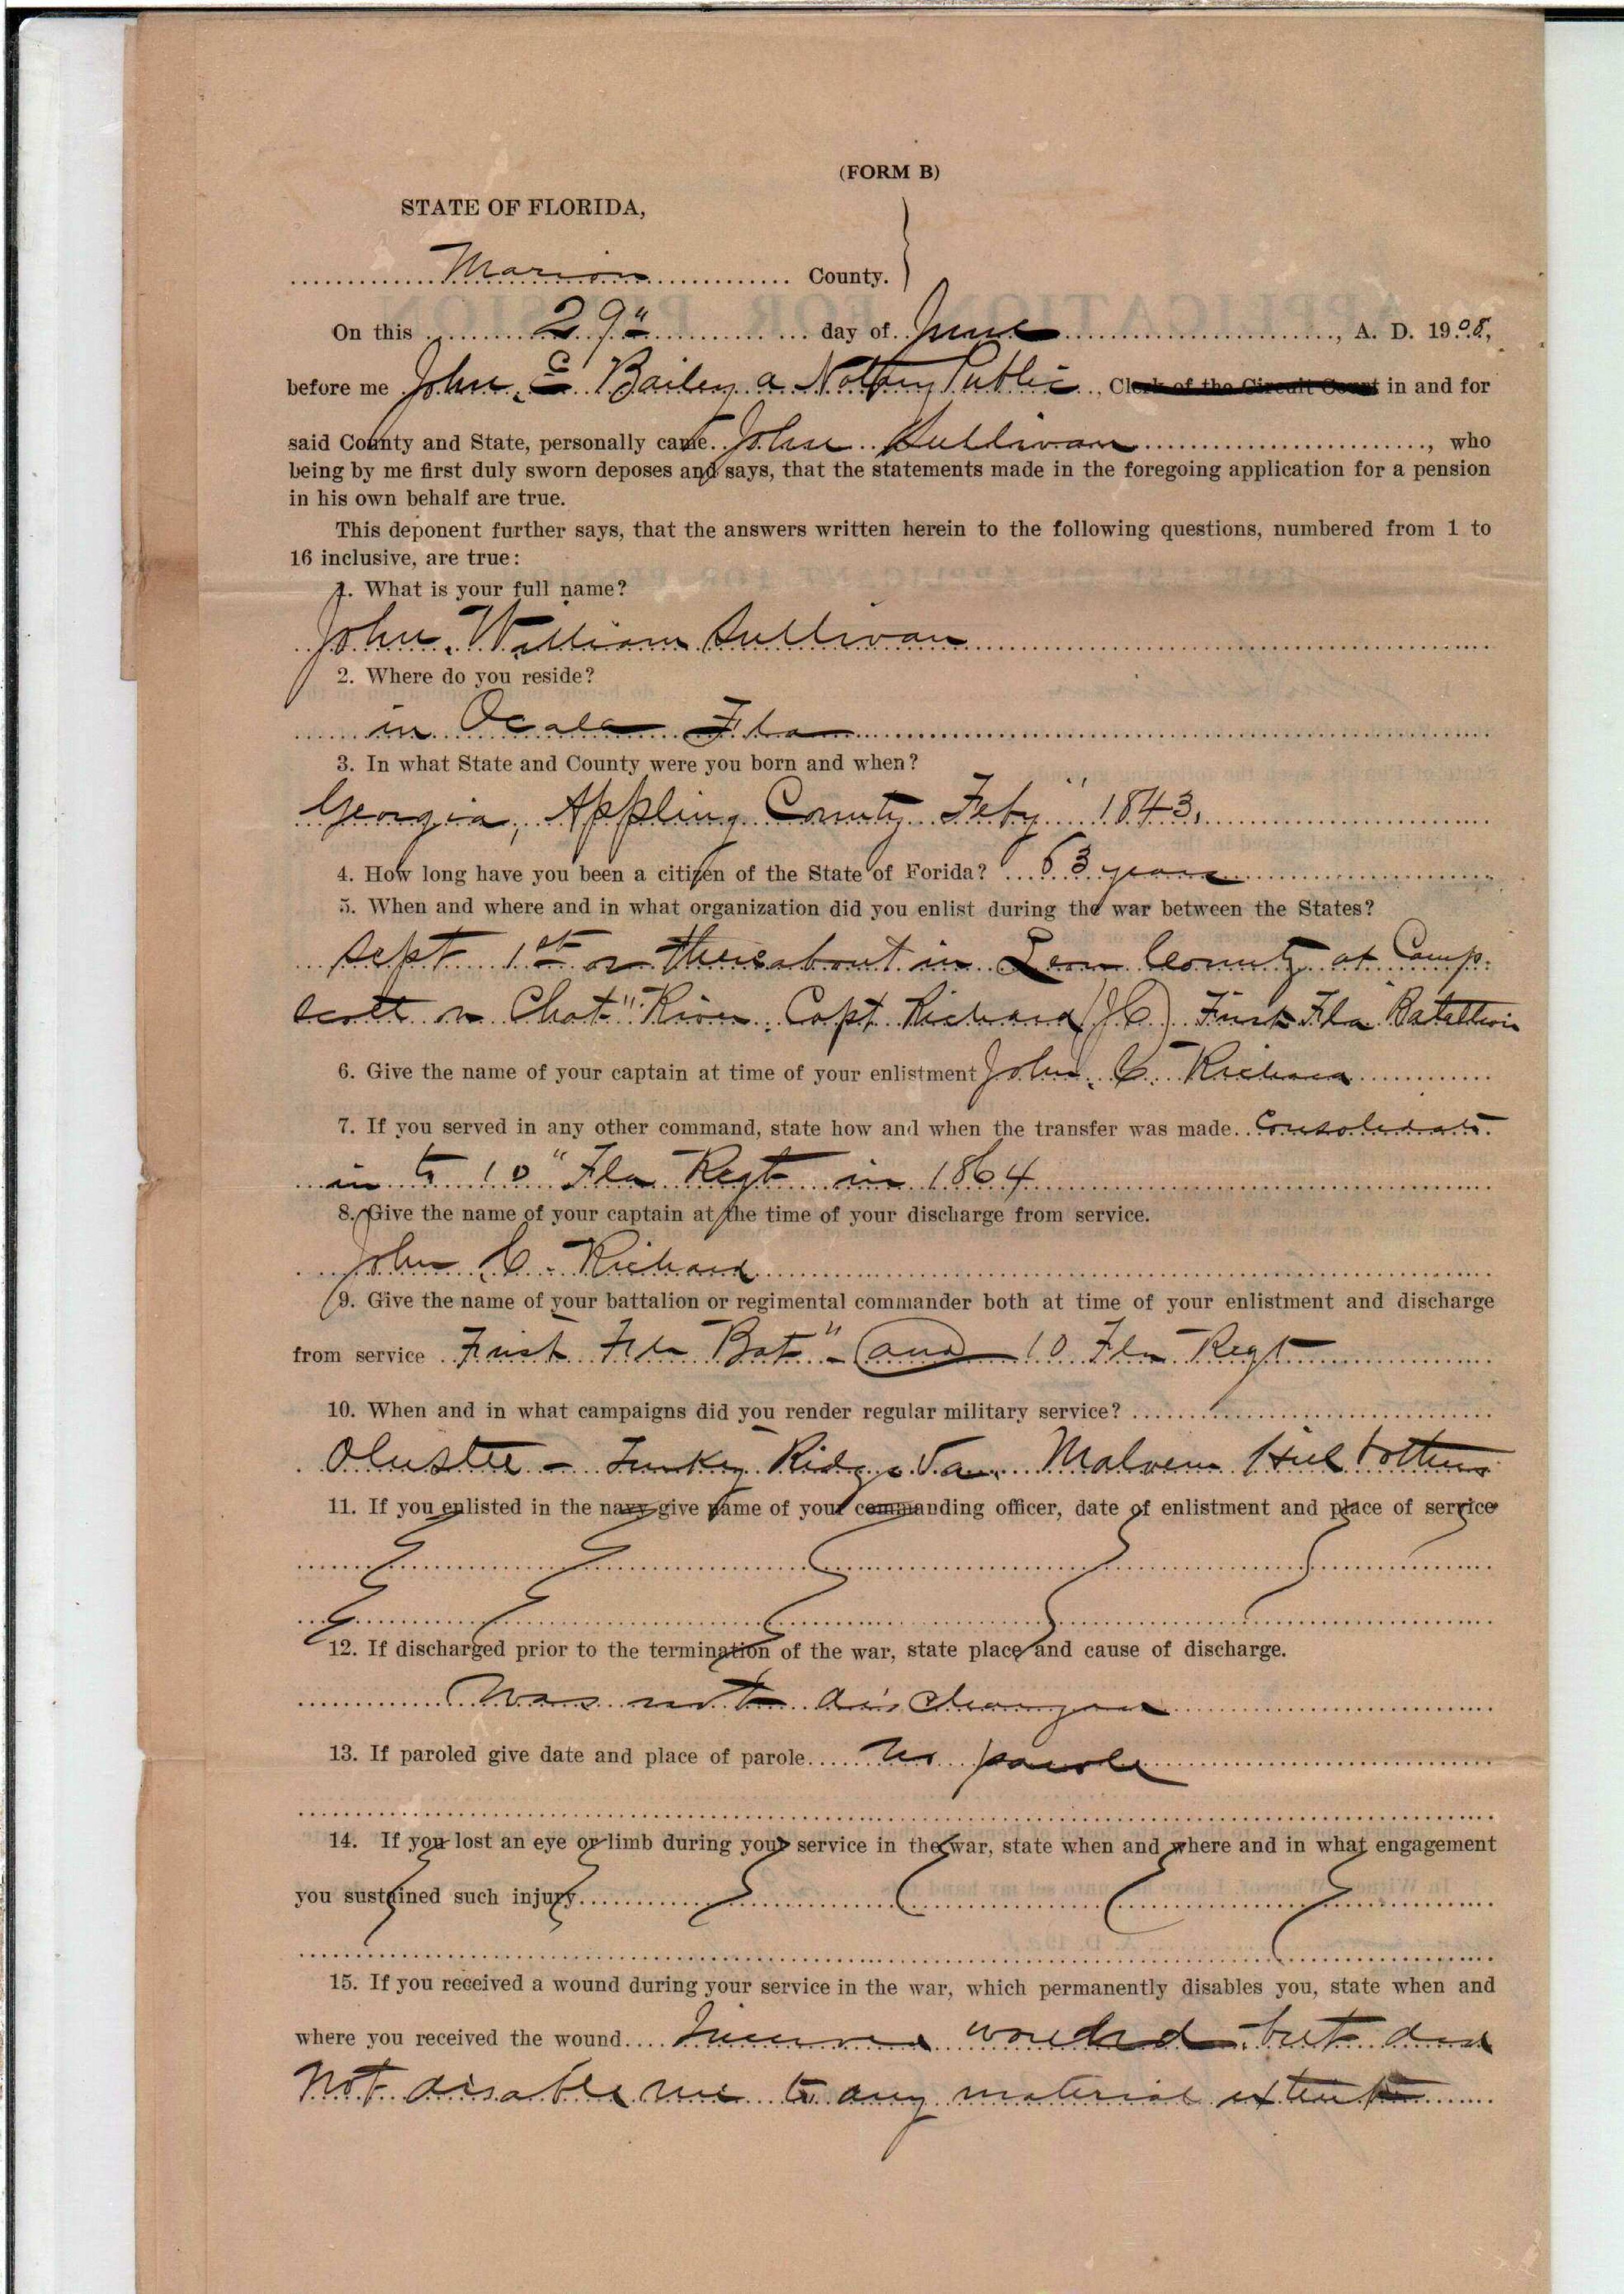 (FORM B)
STATE OF FLORIDA,
Marion County.
On this 29" day of June, A. D. 1908,
before me John E Bailey a Notary Public, Clerk of the Circuit Court in and for
said County and State, personally came John Sullivan, who
being by me first duly sworn deposes and says, that the statements made in the foregoing application for a pension
in his own behalf are true.
This deponent further says, that the answers written herein to the following questions, numbered from 1 to
16 inclusive, are true:
1. What is your full name?
John William Sullivan
2. Where do you reside?
in Ocala Fla
3. In what State and County were you born and when?
Georgia, Appling County Feby" 1843.
4. How long have you been a citizen of the State of Forida? 53 years
5. When and where and in what organization did you enlist during the war between the States?
Sept 1st or thereabout in Leon County at Camp
Scott on Chat" River Capt Richard (J C) First Fla Batallion
6. Give the name of your captain at time of your enlistment John C. Richard
7. If you served in any other command, state how and when the transfer was made. Consolidate
in to 10" Fla Regt in 1864
8. Give the name of your captain at the time of your discharge from service.
John C. Richard
9. Give the name of your battalion or regimental commander both at time of your enlistment and discharge
from service First Fla Bat" - and 10 Fla Regt
10. When and in what campaigns did you render regular military service?
Olustee - Turkey Ridge Va. Malvern Hill & others
11. If you enlisted in the navy give name of your commanding officer, date of enlistment and place of service
12. If discharged prior to the termination of the war, state place and cause of discharge.
Was not discharged
13. If paroled give date and place of parole.... no parole
14. If you lost an eye or limb during your service in the war, state when and where and in what engagement
you sustained such injury
15. If you received a wound during your service in the war, which permanently disables you, state when and
where you received the wound.... wounded but did
not disable me to any material extent